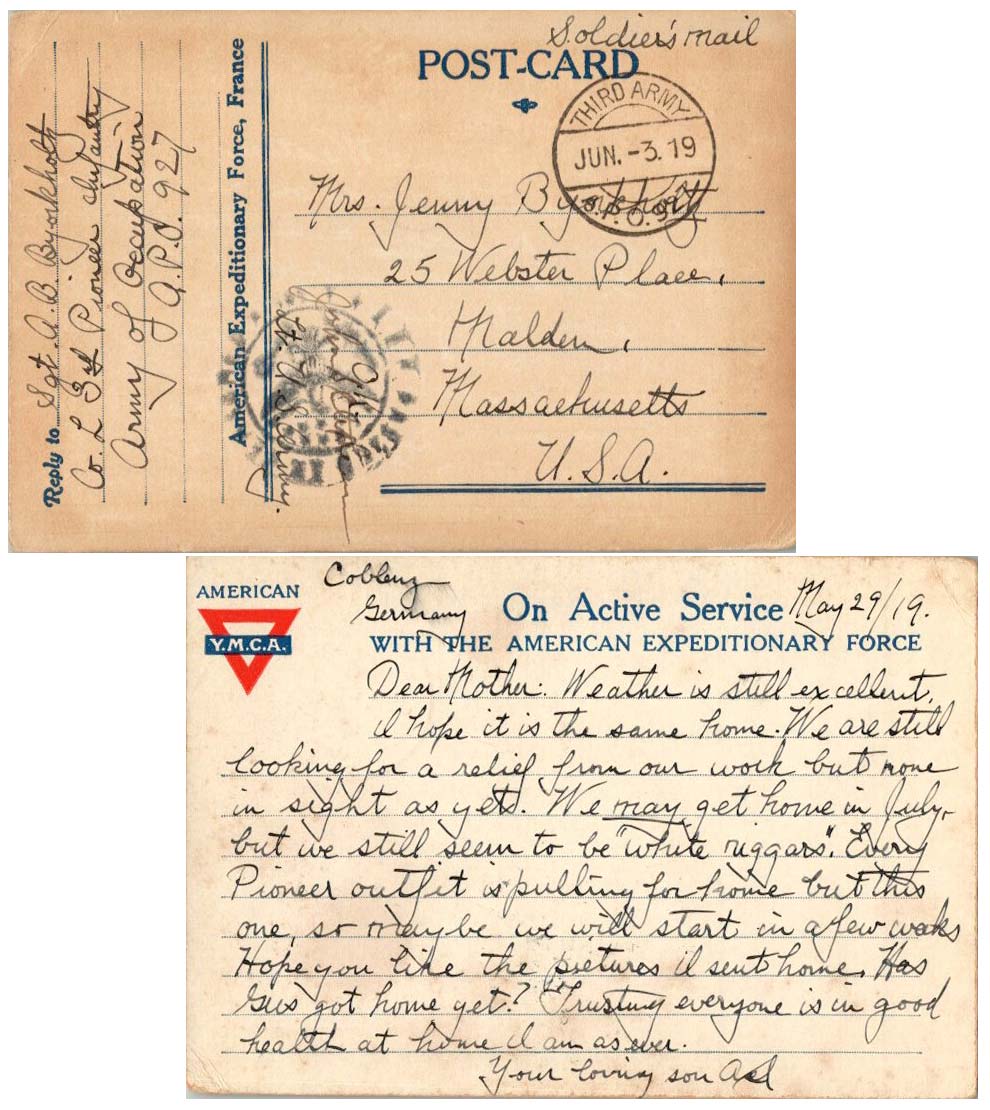 Soldier's mail
POST-CARD
THIRD ARMY
JUN. -3. 19
Mrs. Jenny Byorkholtz
25 Webster Place,
Malden,
Massachusetts
U.S.A.
Reply to Sgt. A. B. Byorkholtz
Co. L 3rd Pioneer Infantry
Army of Occupation
A.P.O. 927
American Expeditionary Force, France
O.K.
Lt. U.S. Army.
AMERICAN
Y.M.C.A.
Coblenz
Germany
On Active Service May 29/19.
WITH THE AMERICAN EXPEDITIONARY FORCE
Dear Mother: Weather is still excellent,
I hope it is the same home. We are still
looking for a relief from our work but none
in sight as yet. We may get home in July,
but we still seem to be "white niggars". Every
Pioneer outfit is pulling for home but this
one, so maybe we will start in a few weeks
Hope you like the pictures I sent home. Has
Gus got home yet? Trusting everyone is in good
health at home I am as ever.
Your loving son